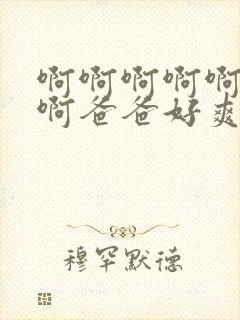 啊啊啊啊啊
啊爸爸好爽
穆罕默德